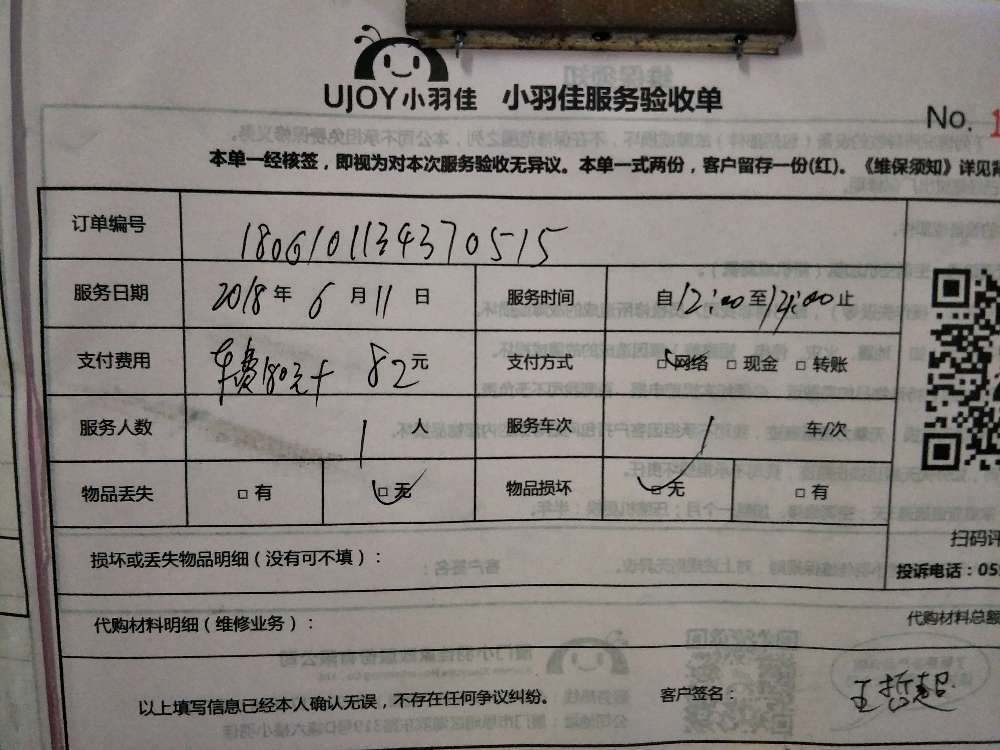 UJOY小羽佳 小羽佳服务验收单
No.
本单一经核签，即视为对本次服务验收无异议。本单一式两份，客户留存一份(红)。《维保须知》详见
订单编号 1806101134370515
服务日期 2018年 6月11日 服务时间 自12:00至14:00止
支付费用 车费180元+ 82元 支付方式 □网络 □现金 □转账
服务人数 1人 服务车次 1 车/次
物品丢失 □有 □无 物品损坏 □无 □有
扫码评
损坏或丢失物品明细（没有可不填）：
投诉电话：05
代购材料明细（维修业务）： 代购材料总额
以上填写信息已经本人确认无误，不存在任何争议纠纷。 客户签名： 王哲起